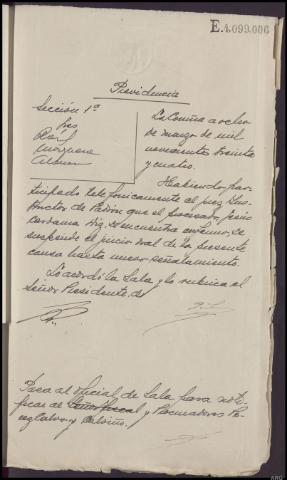 E.4.099.006
Providencia
Sección 1ª
Sres
La Coruña a ocho
de marzo de mil
novecientos treinta
y cuatro.
Habiendo par-
ticipado telefónicamente el juez Ins-
tructor de Padrón que el procesado Jesús
Lardama Viz. se encuentra enfermo, se
suspende el juicio oral de la presente
causa hasta nuevo señalamiento.
Lo acordó la Sala y lo rubrica el
Señor Presidente, de
Pasa al oficial de Sala para noti-
ficar al Señor fiscal y Procuradores
y